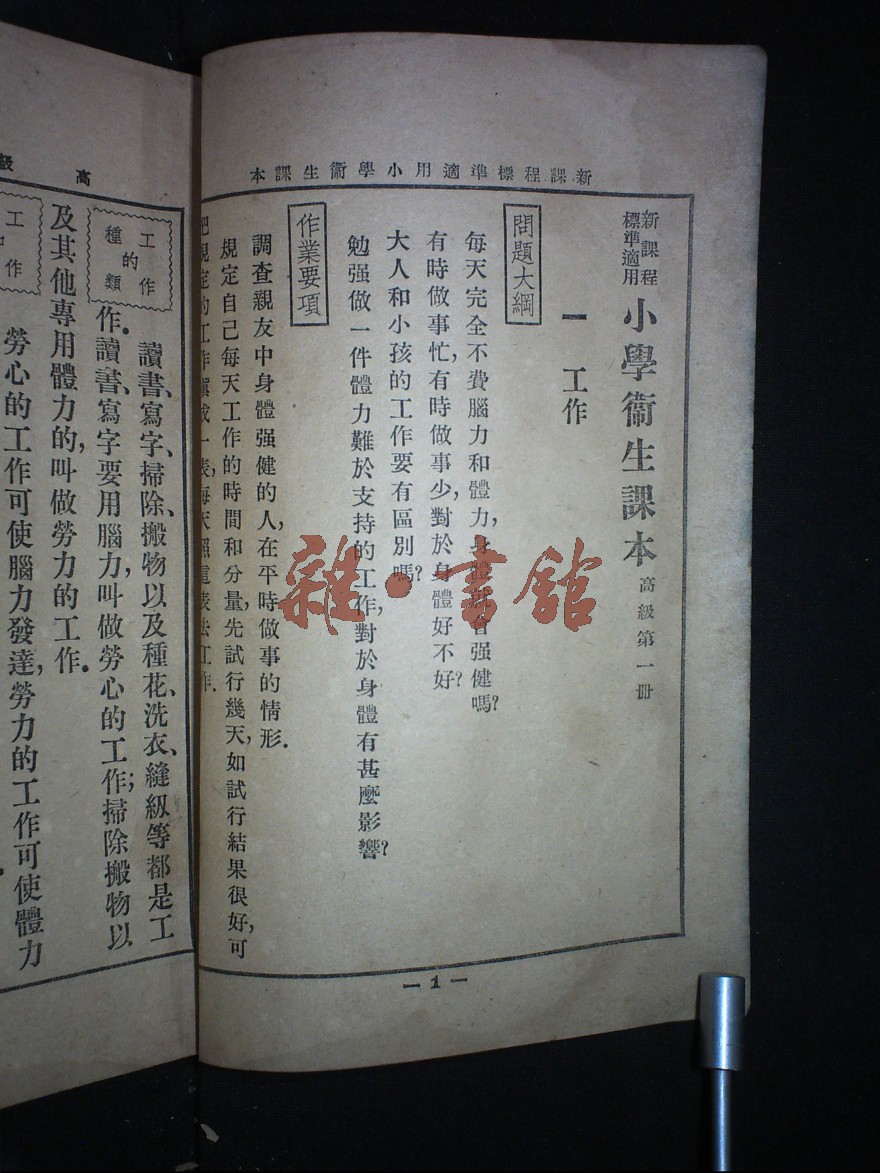 新課程標準適用小學衞生課本
新課程
標準適用
小學衞生課本
高級第一冊
一 工作
問題大綱
每天完全不費腦力和體力，身體就會强健嗎？
有時做事忙，有時做事少，對於身體好不好？
大人和小孩的工作要有區別嗎？
勉强做一件體力難於支持的工作，對於身體有甚麼影響？
作業要項
調查親友中身體强健的人，在平時做事的情形．
規定自己每天工作的時間和分量，先試行幾天，如試行結果很好，可
把規定的工作
一表，每天照
表去工作．
— 1 —
高級
工作
的
種類
讀書、寫字、掃除、搬物以及種花、洗衣、縫級等都是工
作．讀書、寫字要用腦力，叫做勞心的工作；掃除搬物以
及其他專用體力的，叫做勞力的工作．
工
作
勞心的工作可使腦力發達，勞力的工作可使體力
雜·書館